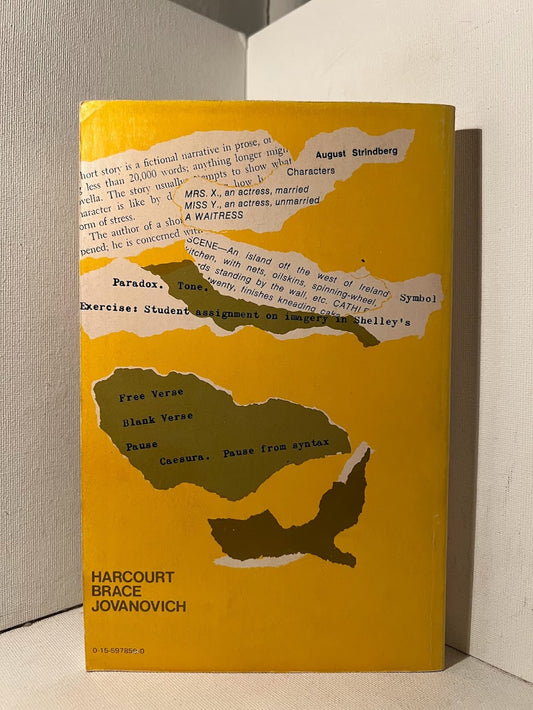 hort story is a fictional narrative in prose, o
less than 20,000 words; anything longer migh
vella. The story usually
mpts to show what
aracter is like by d
how h
orm of stress.
The author of a sho
pened; he is concerned with
August Strindberg
Characters
MRS. X., an actress, married
MISS Y., an actress, unmarried
A WAITRESS
SCENE—An island off the west of Ireland
kitchen, with nets, oilskins, spinning-wheel,
rds standing by the wall, etc. CATHLE
wenty, finishes kneading cake
Paradox. Tone.
Symbol
Exercise: Student assignment on imagery in Shelley's
Free Verse
Blank Verse
Pause
Caesura. Pause from syntax
HARCOURT
BRACE
JOVANOVICH